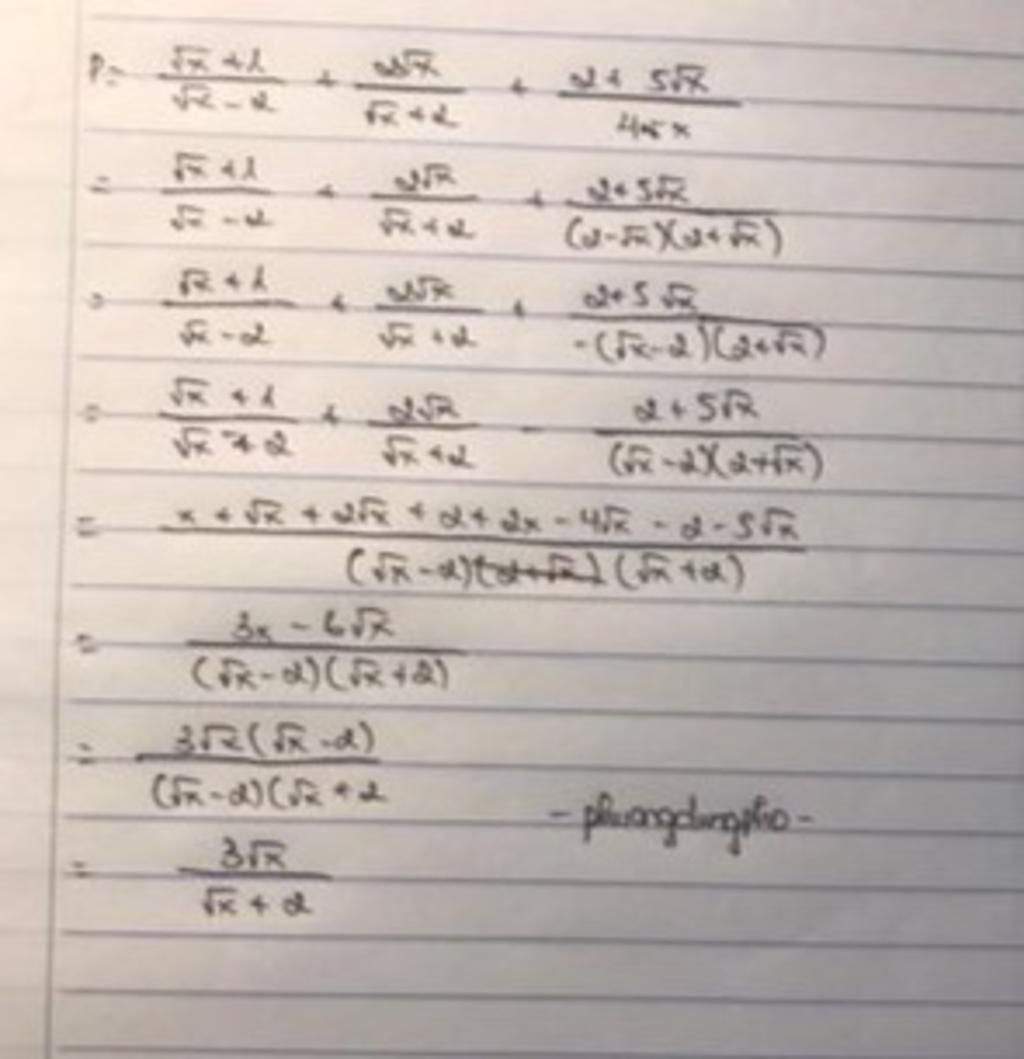 P = (√x + 1)/(√x - 2) + 2√x/(√x + 2) + (2 + 5√x)/(4 - x)
= (√x + 1)/(√x - 2) + 2√x/(√x + 2) + (2 + 5√x)/((2 - √x)(2 + √x))
= (√x + 1)/(√x - 2) + 2√x/(√x + 2) + (2 + 5√x)/(-(√x - 2)(2 + √x))
= (√x + 1)/(√x - 2) + 2√x/(√x + 2) - (2 + 5√x)/((√x - 2)(2 + √x))
= (x + √x + 2√x + 2 + 2x - 4√x - 2 - 5√x)/((√x - 2)(√x + 2))
= (3x - 6√x)/((√x - 2)(√x + 2))
= 3√x(√x - 2)/((√x - 2)(√x + 2
- phuongdungpho -
= 3√x/(√x + 2)